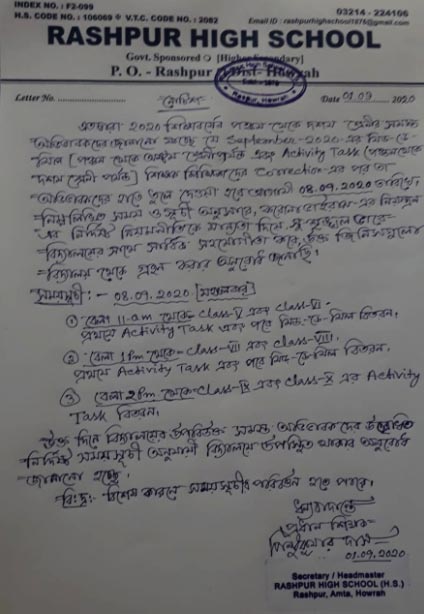 INDEX NO. : F2-099
H.S. CODE NO. : 106069 ✦ V.T.C. CODE NO. : 2082
03214 - 224106
Email ID : rashpurhighschool1876@gmail.com
RASHPUR HIGH SCHOOL
Govt. Sponsored ❍ [Higher Secondary]
P. O. - Rashpur Dist- Howrah
Letter No.
নোটিশ
Date 01.09 2020
এতদ্বারা 2020 শিক্ষাবর্ষের পঞ্চম থেকে দশম শ্রেণীর সমস্ত
অভিভাবকদের জানানো যাচ্ছে যে September-2020-এর মিড-ডে-
মিল [পঞ্চম থেকে অষ্টম শ্রেণীপর্যন্ত এবং Activity Task [পঞ্চমথেকে
দশম শ্রেণী পর্যন্ত] শিক্ষক শিক্ষিকাদের Correction-এর পর তা
অভিভাবকদের হাতে তুলে দেওয়া হবে আগামী 08.09.2020 তারিখে,
নিম্নলিখিত সময় ও সূচী অনুসারে, করোনা ভাইরাস-এর নিয়ন্ত্রনে
এর নির্দিষ্ট নিয়মনীতিকে মান্যতা দিয়ে সুশৃঙ্খল ভাবে
বিদ্যালয়ের সাথে সার্বিক সহযোগীতা করে, উক্ত জিনিসগুলো
বিদ্যালয় থেকে গ্রহণ করার অনুরোধ জানাচ্ছি।
সময়সূচী :- 08.09.2020 [মঙ্গলবার]
① বেলা 11-am থেকে- Class-V এবং Class-VI-
প্রথমে Activity Task এবং পরে মিড-ডে-মিল বিতরন.
② বেলা 1Pm থেকে- Class-VII এবং Class-VIII,
প্রথমে Activity Task এবং পরে মিড-ডে-মিল বিতরন.
③ বেলা 2Pm থেকে- Class-IX এবং Class-X এর Activity
Task বিতরন.
উক্ত দিনে বিদ্যালয়ের উপরিউক্ত সমস্ত অভিভাবকদের উল্লেখিত
নির্দিষ্ট সময়সূচী অনুযায়ী বিদ্যালয়ে উপস্থিত থাকার অনুরোধ
জানানো হচ্ছে।
বিঃদ্রঃ- বিশেষ কারনে সময়সূচীর পরিবর্তন হতে পারে।
ধন্যবাদান্তে
প্রধান শিক্ষক
দাস
01.09.2020
Secretary / Headmaster
RASHPUR HIGH SCHOOL (H.S.)
Rashpur, Amta, Howrah